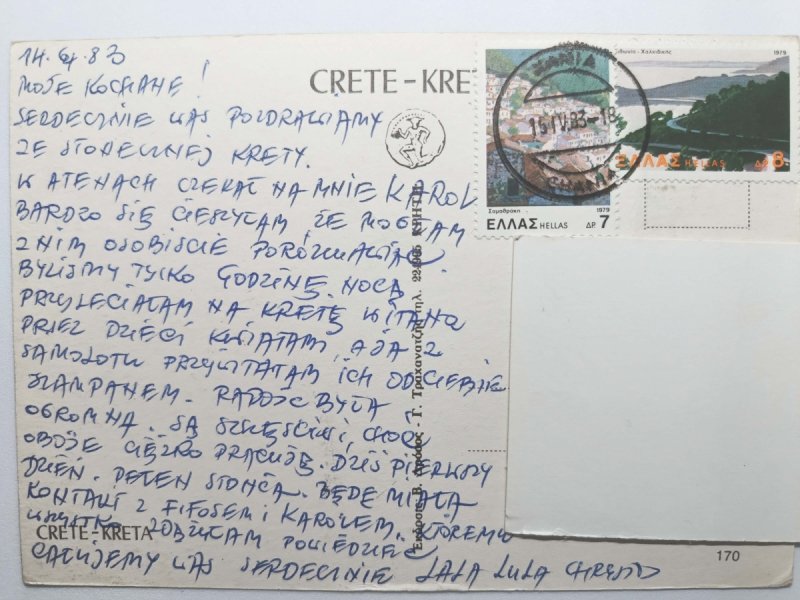 14.4.83
CRETE-KRE
MOJE KOCHANE!
SERDECZNIE WAS POZDRAWIAMY
ZE SŁONECZNEJ KRETY.
W ATENACH CZEKAŁ NA MNIE KAROL
BARDZO SIĘ CIESZYŁAM, ŻE MOGŁAM
Z NIM OSOBIŚCIE POROZMAWIAĆ
BYLIŚMY TYLKO GODZINĘ. NOCĄ
PRZYLECIAŁAM NA KRETĘ WITANO
PRZEZ DZIECI KWIATAMI, A JA Z
SAMOLOTU PRZYWITAŁAM ICH OD CIEBIE
SZAMPANEM. RADOŚĆ BYŁA
OGROMNA. SĄ SZCZĘŚLIWI, CHOĆ
OBOJE CIĘŻKO PRACUJĄ. DZIŚ PIERWSZY
DZIEŃ. PEŁEN SŁOŃCA. BĘDĘ MIAŁA
KONTAKT Z FIFOSEM I KAROLEM. KTÓREMU
WSZYSTKO ZDĄŻYŁAM POWIEDZIEĆ
CAŁUJEMY WAS SERDECZNIE LALA LULA
CRETE-KRETA
170
Έκδοσις Β. - Γ. Τραχανατζής τηλ. ΚΡΗΤΗ
Σαμοθράκη 1979
ΕΛΛΑΣ HELLAS ΔΡ. 7
Σιθωνία - Χαλκιδικής 1979
ΕΛΛΑΣ HELLAS ΔΡ. 8
ΧΑΝΙΑ
IV.83-18
CHANIA